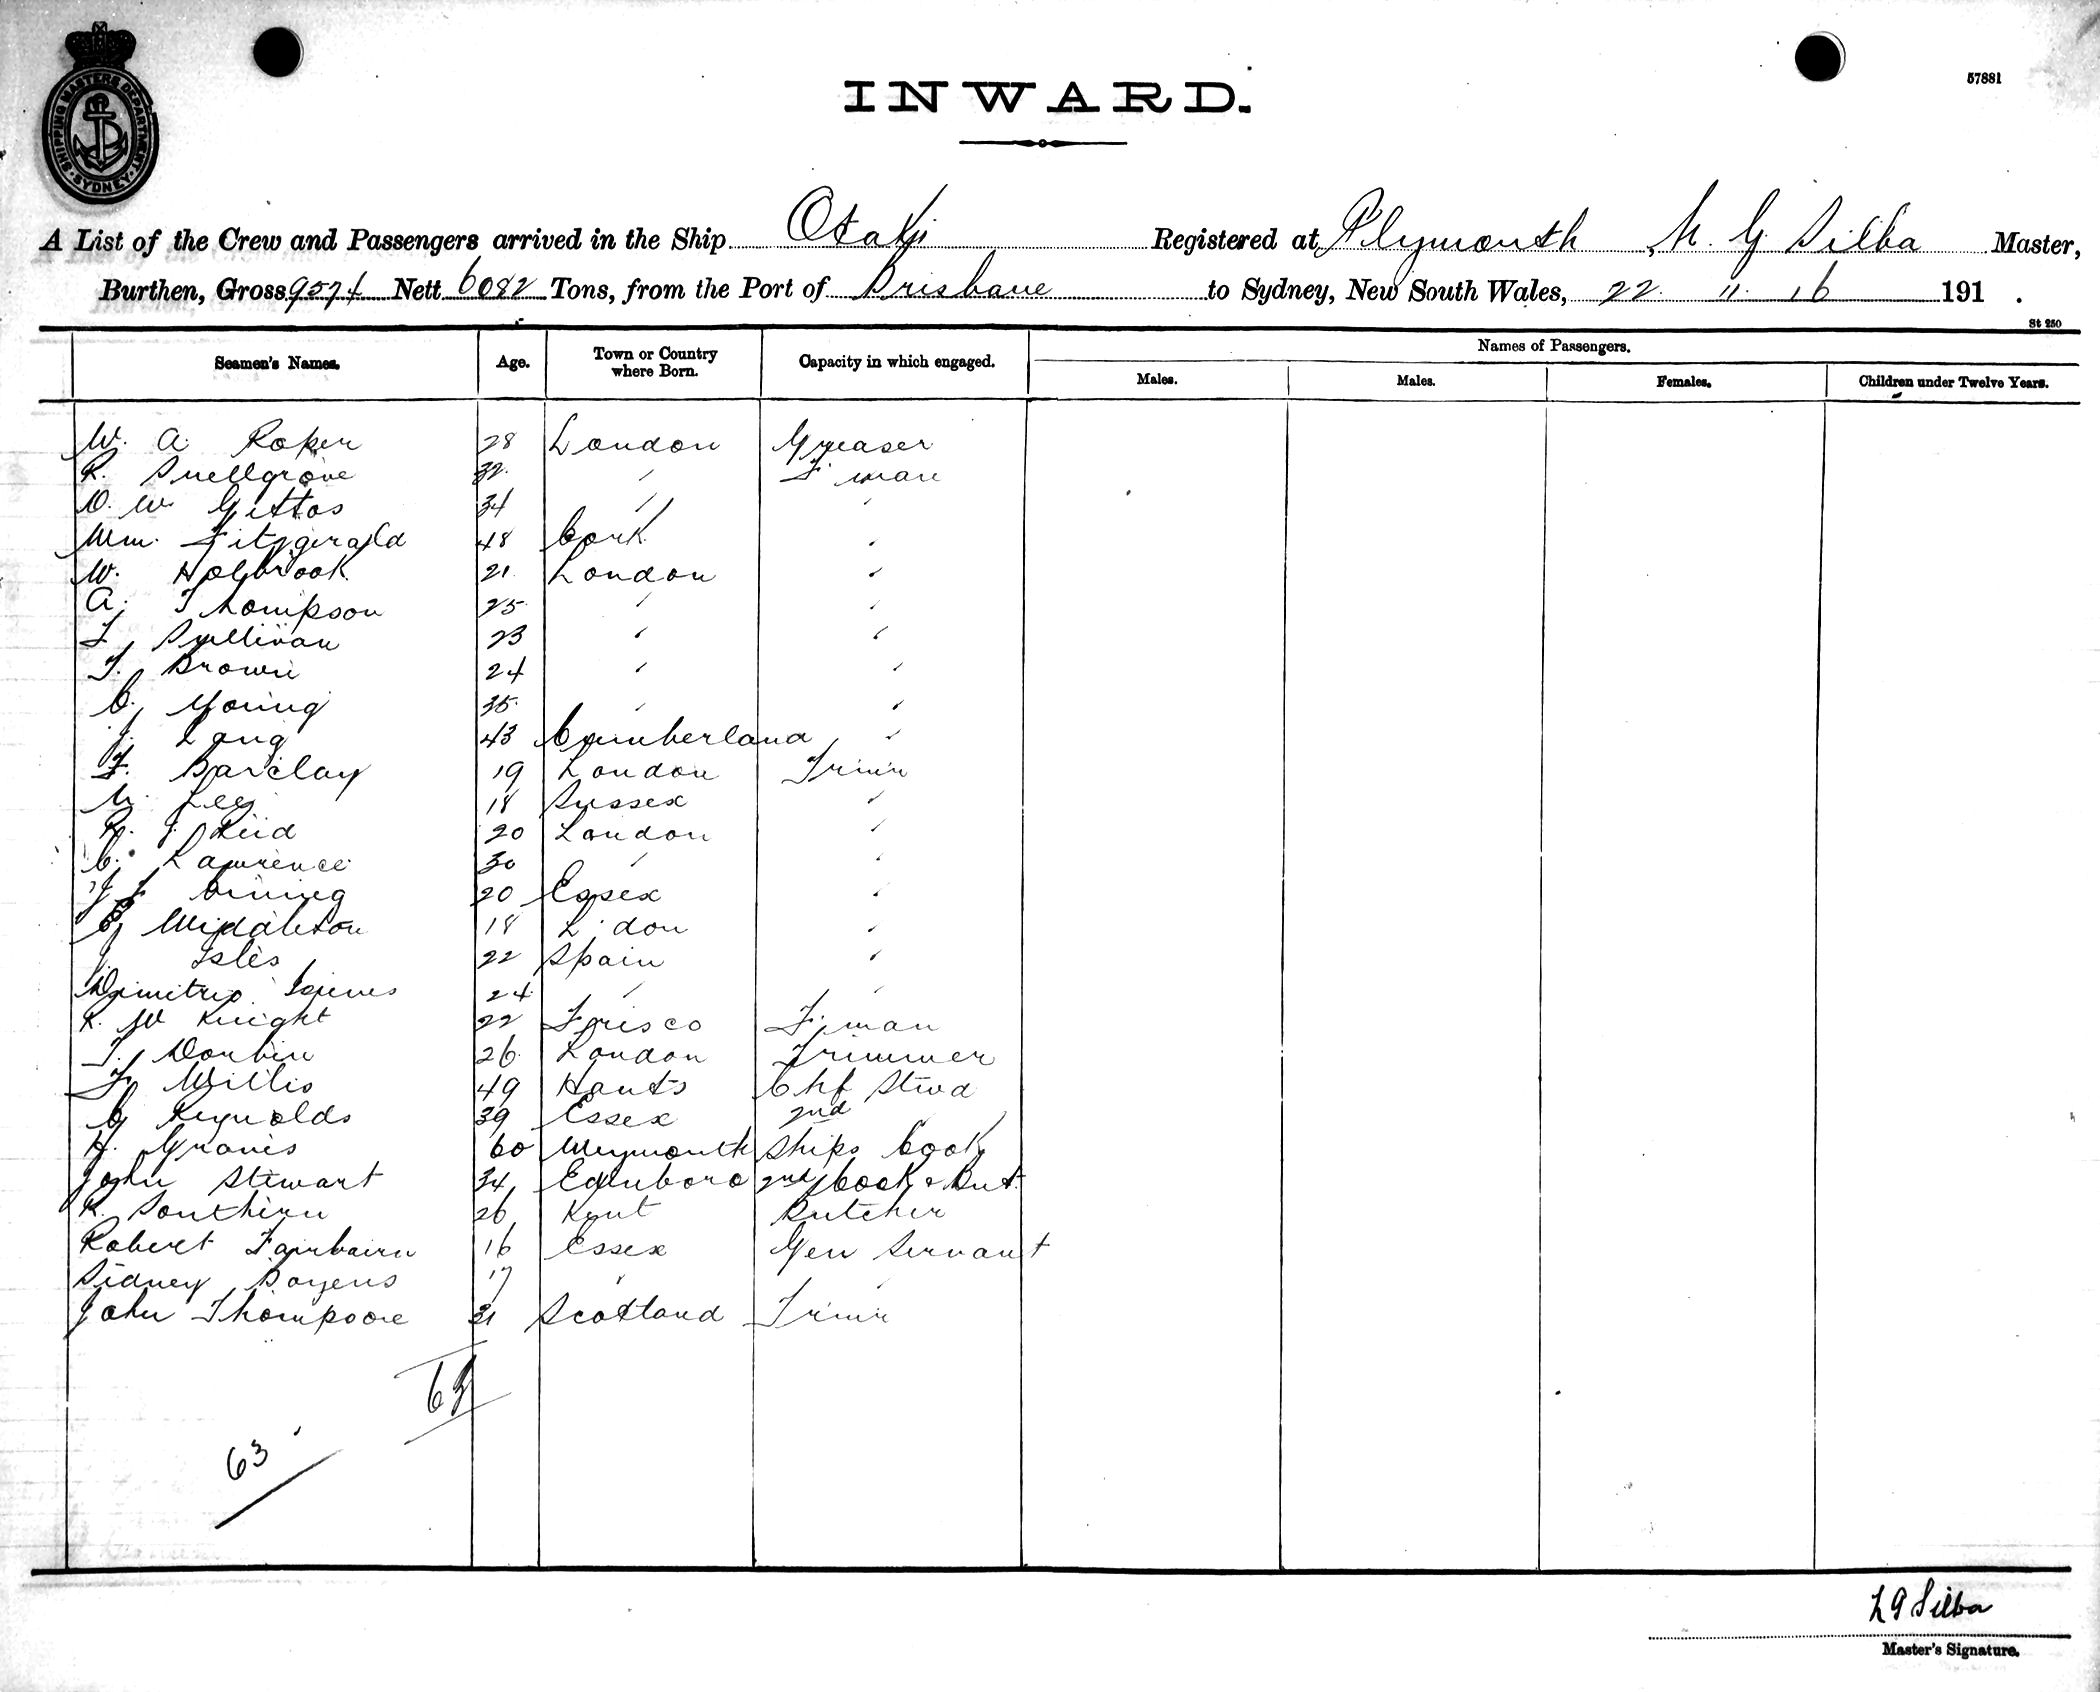 SHIPPING MASTERS DEPARTMENT. SYDNEY.
57881
INWARD.
A List of the Crew and Passengers arrived in the Ship Otaki Registered at Plymouth, G Silba Master,
Burthen, Gross 9574 Nett 6082 Tons, from the Port of Brisbane to Sydney, New South Wales, 22. 11. 16 191 .
St 250
Seamen's Names. Age. Town or Country where Born. Capacity in which engaged. Names of Passengers.
Males. Males. Females. Children under Twelve Years.
W. A. Roper 28 London Greaser
R. Snellgrove 32 " F'man
D. W. Gittos 34 " "
Wm. Fitzgerald 48 Cork "
W. Holbrook 21 London "
A. Thompson 25 " "
Sullivan 23 " "
T. Brown 24 " "
C. Young 35 " "
J. Lang 43 Cumberland "
F. Barclay 19 London Trimr
Lee 18 Sussex "
J. Reid 20 London "
C. Lawrence 30 " "
20 Essex "
Middleton 18 L'don "
Isles 22 Spain "
Dimitrio 24 " "
R. W Knight 22 Frisco F'man
T. 26 London Trimmer
F. Willis 49 Hants Chf Stwd
C Reynolds 39 Essex 2nd "
H. Graves 60 Weymouth Ships Cook
John Stewart 34 Edinboro 2nd Cook & But.
R. Southern 26 Kent Butcher
Robert Fairbairn 16 Essex Gen Servant
Sidney 17 " "
John Thompson 21 Scotland Trimr
63
63
Silba
Master's Signature.